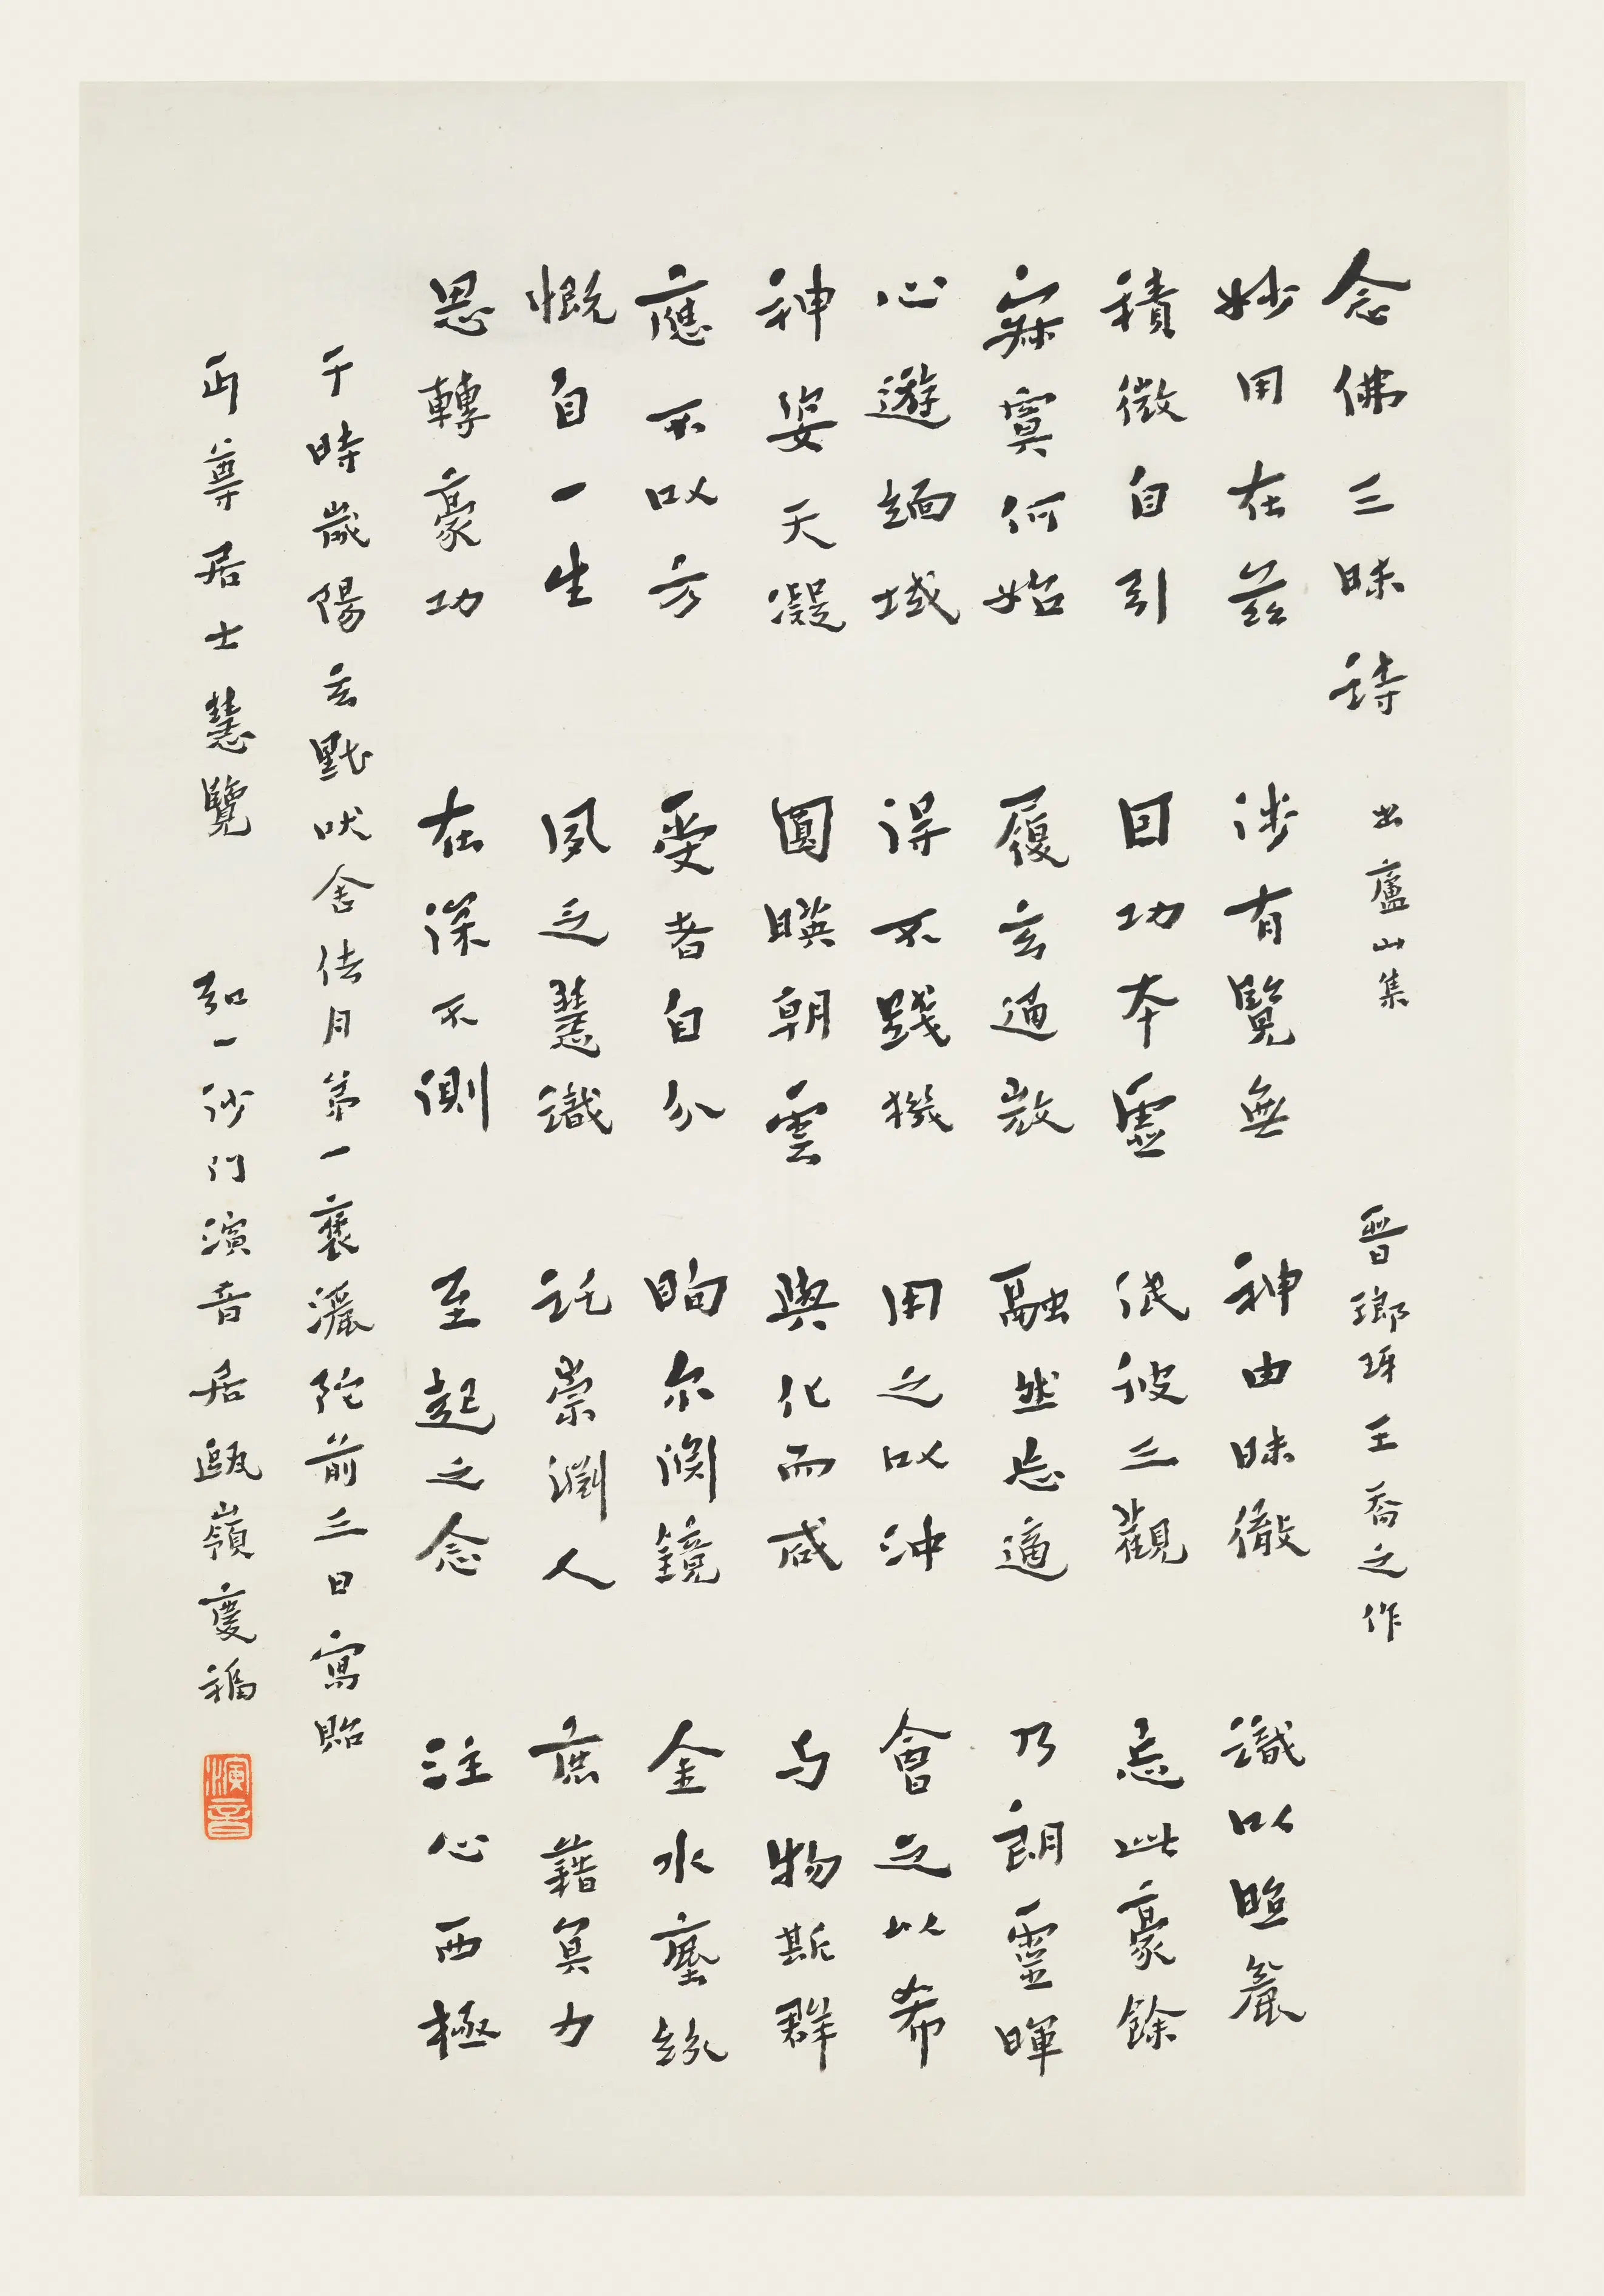 念佛三昧詩 出廬山集 晉瑯琊王喬之作
妙用在茲 涉有覽無 神由昧徹 識以照麤
積微自引 因功本虛 泯彼三觀 忘此豪餘
寂寞何始 履玄通微 融然忘適 乃朗靈暉
心遊緬域 得不踐機 用之以沖 會之以希
神姿天凝 圓暎朝雲 與化而感 与物斯群
應不以方 受者自分 眴尔淵鏡 金水塵紛
慨自一生 夙乏慧識 託崇淵人 庶藉冥力
思轉豪功 在深不測 至起之念 注心西極
于時歲陽玄黓吠舍佉月第一褒灑陀前三日寫貽
丏尊居士慧覽 弘一沙门演音居甌嶺慶福
演音